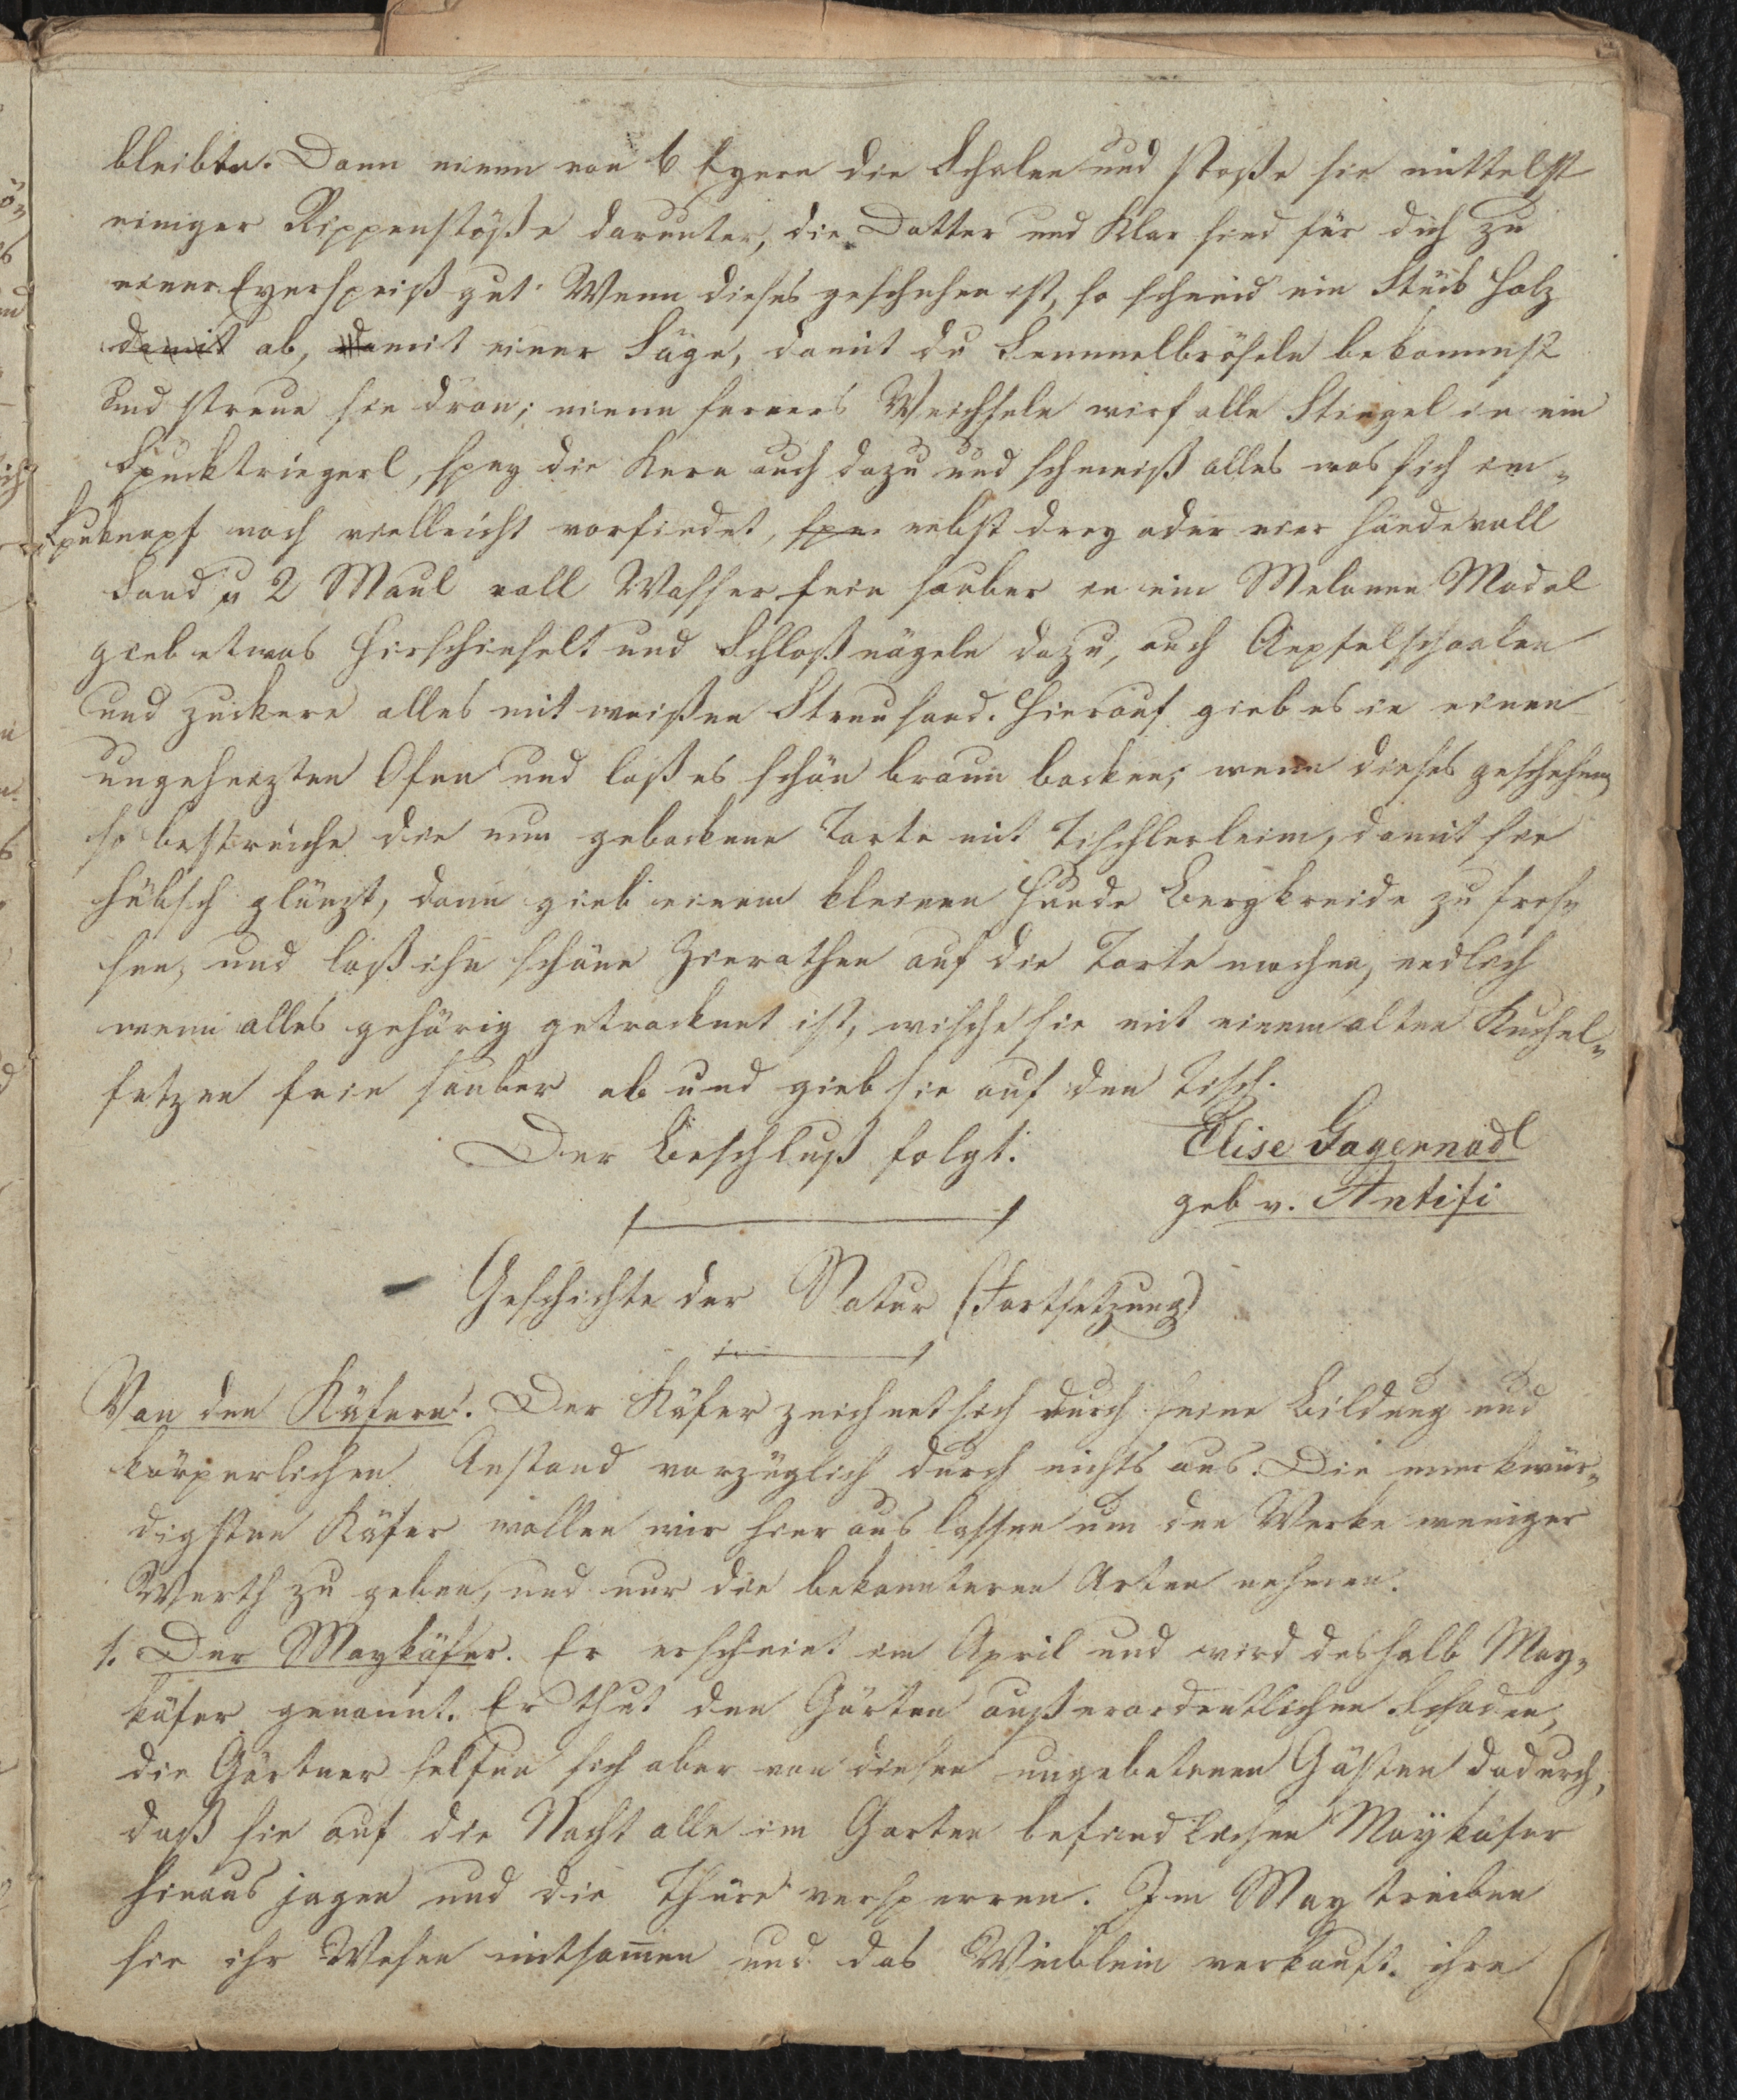 bleibtu. Dann nimm von 6 Eyern die Schalen und stoße sie mittelst
einiger Rippenstöße darunter, die Dotter und Klar sind für dich zu
einer Eyerspeiß gut. Wenn dieses geschehen ist, so schneid ein Stük Holz
damit ab, damit einer Säge, damit du Semmelbröseln bekommst
und streue sie dran; nimm ferners Weichseln wirf alle Stingel in ein
Spucktriegerl, spey die Kern auch dazu und schmeiß alles was sich im
Spuknapf noch vielleicht vorfindet, spe nebst drey oder vier Händevoll
Sand u 2 Maul voll Wasser fein sauber in ein Melonen Model
gieb etwas Hirschinselt und Schloßnägeln dazu, auch Aepfelschaalen
und zuckere alles mit weißen Streusand. Hierauf gieb es in einen
ungeheizten Ofen und laß es schön braun backen; wenn dieses geschehen,
so bestreiche die nun gebackene Torte mit Tischlerleim, damit sie
hübsch glänzt, dann gieb einem kleinen Hunde Bergkreide zu fres-
sen, und laß ihn schöne Zierathen auf die Torte machen, endlich
wenn alles gehörig getrocknet ist, wische sie mit einem alten Kuchel-
fetzen fein sauber ab und gieb sie auf den Tisch.
Der Beschluß folgt. Elise Gagernadl
geb v. Antifi
Geschichte der Natur (Fortsetzung)
Von den Käfern. Der Käfer zeichnet sich durch seine Bildung und
körperlichen Anstand vorzüglich durch nichts aus. Die merkwür-
digsten Käfer wollen wir hier aus lassen um den Werke weniger
Werth zu geben, und nur die bekannteren Arten nehmen.
1. Der Maykäfer. Er erscheint im April und wird deshalb May-
käfer genannt. Er thut den Gärten außerordentlichen Schaden,
die Gärtner helfen sich aber von diesen ungebetenen Gästen dadurch,
daß sie auf die Nacht alle im Garten befindlichen Maykäfer
hinaus jagen und die Thüre versperren. Im May treiben
sie ihr Wesen mitsam̅en und das Weiblein verkauft ihre